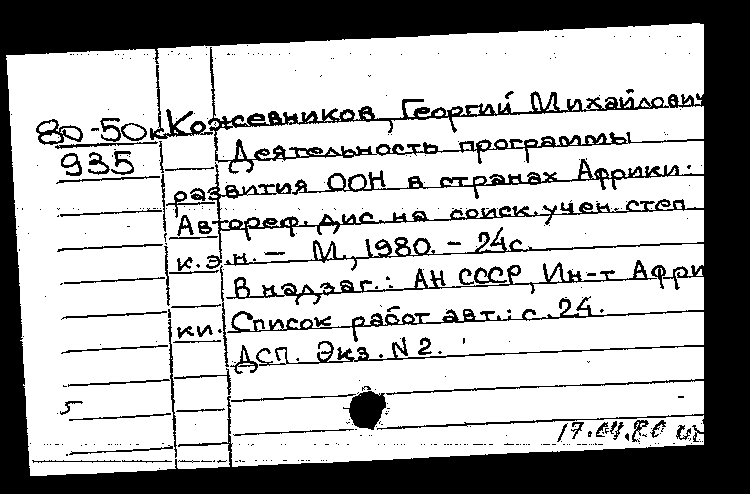 80-50к Кожевников, Георгий Михайлович
935 Деятельность программы
развития ООН в странах Африки:
Автореф. дис. на соиск. учен. степ
к.э.н. — М., 1980. – 24с.
В надзаг.: АН СССР, Ин-т Афри
ки. Список работ авт.: с. 24.
ДСП. Экз. N 2.
5
17.04.80